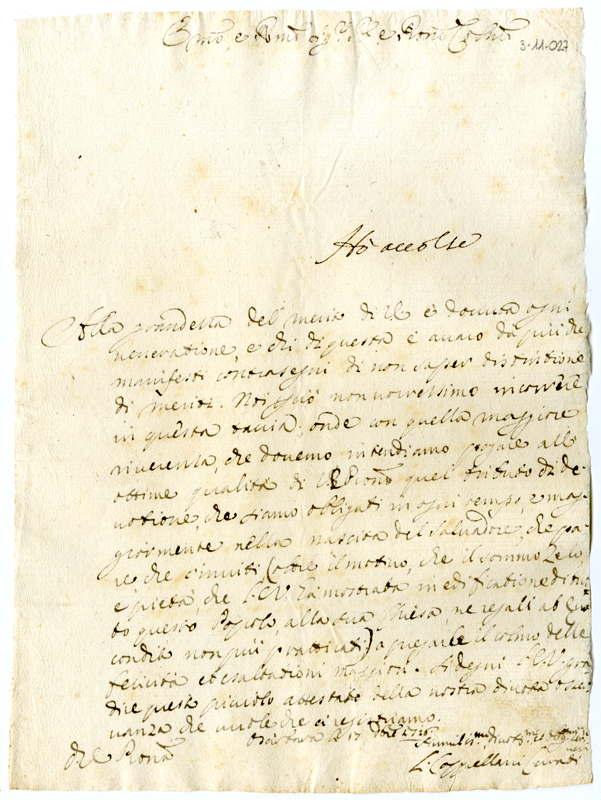 Emo, e Rmo Sigr. e Pron Colmo
3-11-027
Hò accolse
Alla grandezza del merito di VE è dovuta ogni
veneratione, e chi di questa è avaro dà più che
manifesti contrasegni di non saper distintione
di meriti. Noi però non vorressimo incorrere
in questa taccia; onde con quella maggiore
riverenza, che dovemo intendiamo portare alle
ottime qualità di quel tributo di de-
votione che siamo obligati in ogni tempo, e mag-
giormente nella nascita del Salvadore, che pa-
re che c'inviti (oltre il motivo, che il sommo zelo,
e pietà che l'E.V. hà mostrata in edificatione di tut-
to questo Popolo, alla sua Chiesa, ne regali ab
condita non più pratticati) a pregarle il colmo delle
felicità et esaltationi maggiori. Si degni l'E.V. gra-
dire questo piccolo attestato della nostra divota osser-
vanza che vuole che ci rest
li 17 Xbre 1726
di VE Roma
Humilis. divot. et
L Cappellani Curati